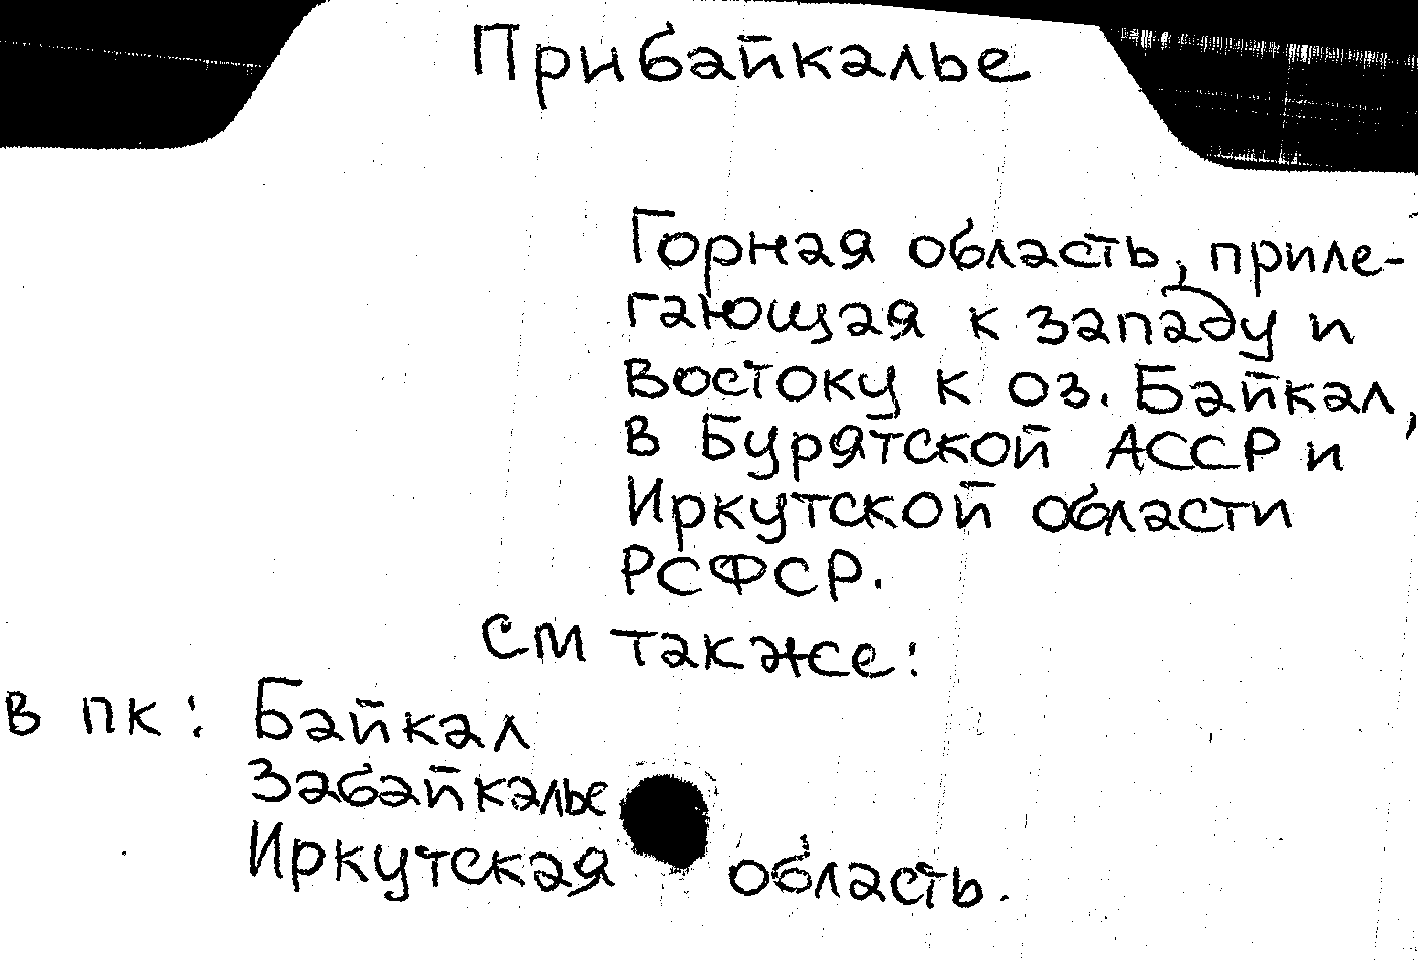 Прибайкалье
Горная область, приле-
гающая к западу и
востоку к оз. Байкал,
в Бурятской АССР и
Иркутской области
РСФСР.
См также:
в пк: Байкал
Забайкалье
Иркутская область.